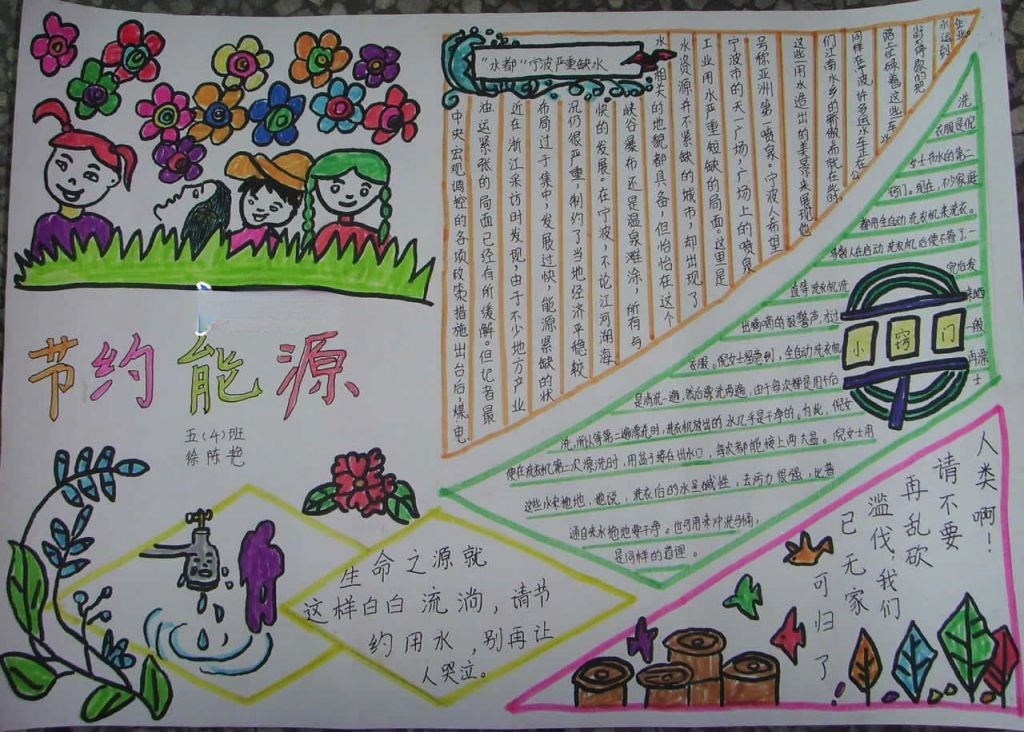 节约能源
五(4)班
徐陈艳
"水都"宁波严重缺水
中央宏观调控的各项政策措施出台后,煤电
油运紧张的局面已经有所缓解。但记者最
近在浙江采访时发现,由于不少地方产业
布局过于集中,发展过快,能源紧缺的状
况仍很严重,制约了当地经济平稳较
快的发展。在宁波,不论江河湖海
峡谷瀑布还是温泉滩涂,所有与
水相关的地貌都具备,但恰恰在这个
水资源并不紧缺的城市,却出现了
工业用水严重短缺的局面。这里是
宁波市的天一广场,广场上的喷泉
号称亚洲第一喷泉,宁波人希望
这些用水造出的美景来展现他
们江南水乡的骄傲。而就在此时
同样在宁波,许多运水车正在公
路上忙碌着,这些车
水运到
企业。
小窍门
洗
衣服是倪
女士节水的第二
窍门。现在,不少家庭
都用全自动洗衣机来洗衣。
多数人在启动洗衣机后便不管了一
直等洗衣机洗完后发
出嘀嘀的报警声,才过来晒
衣服。倪女士留意到,全自动洗衣机一般
是再洗一遍,然后漂洗两遍,由于每次都是用干后再漂
洗,所以等第二遍漂洗时,洗衣机放出的水几乎是干净的。为此,倪女士
便在洗衣机第二次漂洗时,用盆子接在出水口,每次都能接上两大盆。倪女士用
这些水来拖地,她说,洗衣后的水呈碱性,去污力很强,比普
通自来水拖地要干净。也可用来冲洗马桶,
是同样的道理。
生命之源就
这样白白流淌,请节
约用水,别再让
人哭泣。
人类啊!
请不要
再乱砍
滥伐,我们
已无家
可归了